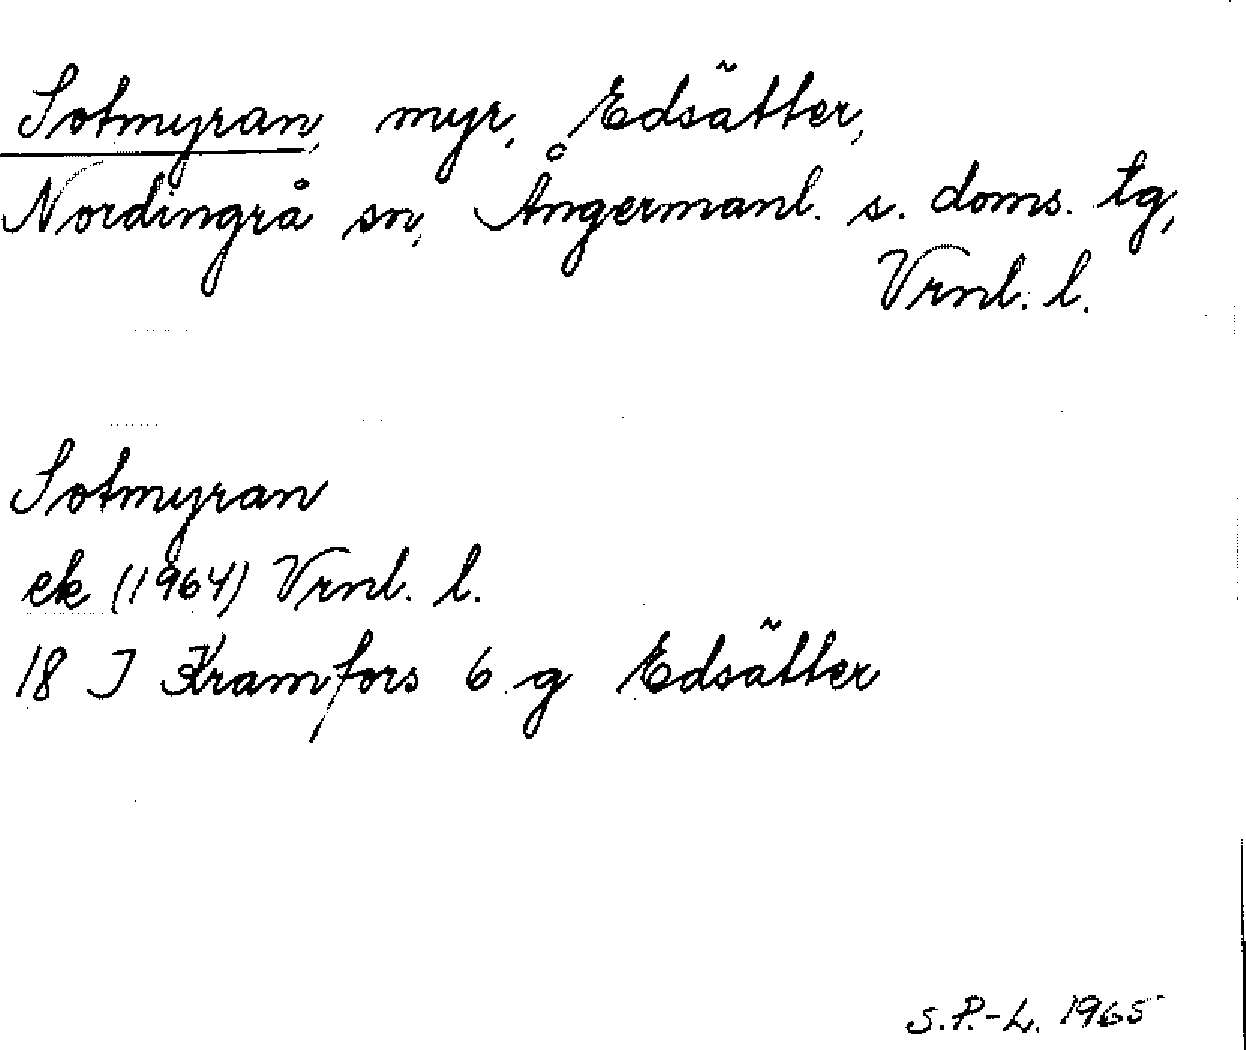 Sotmyran, myr, Edsätter,
Nordingrå sn, Ångermanl. s. doms. tg,
Vrnl. l.
Sotmyran
ek (1964) Vrnl. l.
18 J Kramfors 6 g Edsätter
S.P.-L. 1965